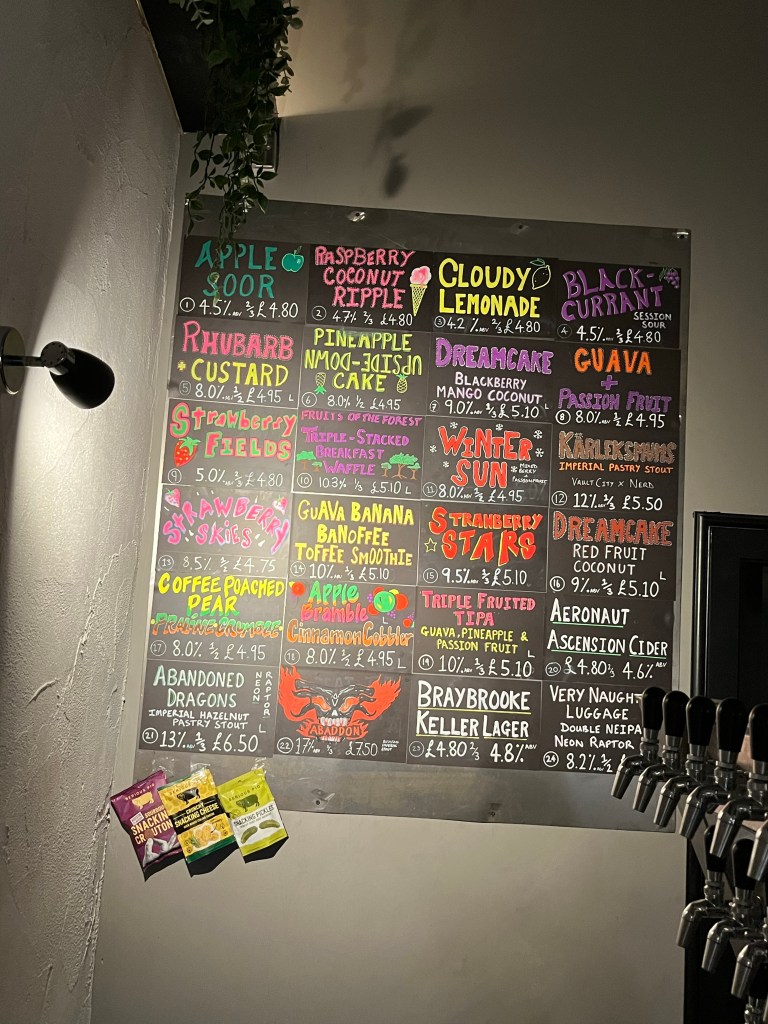 APPLE
SOOR
1 4.5% ABV 2/3 £4.80
RASPBERRY
COCONUT
RIPPLE
2 4.7% 2/3 £4.80
CLOUDY
LEMONADE
3 4.2% ABV 2/3 £4.80
BLACK-
CURRANT
SESSION
SOUR
4 4.5% 2/3 £4.80
RHUBARB
+ CUSTARD
5 8.0% ABV 1/2 £4.95 L
PINEAPPLE
UPSIDE-DOWN
CAKE
6 8.0% 1/2 £4.95
DREAMCAKE
BLACKBERRY
MANGO COCONUT
7 9.0% ABV 1/3 £5.10 L
GUAVA
+
PASSION FRUIT
8 8.0% ABV 1/2 £4.95
Strawberry
FIELDS
9 5.0% ABV 2/3 £4.80
FRUITS OF THE FOREST
TRIPLE-STACKED
BREAKFAST
WAFFLE
10 10.3% 1/3 £5.10 L
WINTER
SUN
MIXED
BERRY
PASSIONFRUIT
11 8.0% ABV 1/2 £4.95
KÄRLEKSMUMS
IMPERIAL PASTRY STOUT
VAULT CITY X NERD
12 12% ABV 1/3 £5.50
STRAWBERRY
SKIES
13 8.5% 1/2 £4.75
GUAVA BANANA
BANOFFEE
TOFFEE SMOOTHIE
14 10% ABV 1/3 £5.10
STRANBERRY
STARS
15 9.5% ABV 1/3 £5.10
DREAMCAKE
RED FRUIT
COCONUT
16 9% ABV 1/3 £5.10 L
COFFEE POACHED
PEAR
PRALINE CRUMBLE
17 8.0% ABV 1/2 £4.95
Apple
Bramble
Cinnamon Cobbler
18 8.0% ABV 1/2 £4.95 L
TRIPLE FRUITED
TIPA
GUAVA, PINEAPPLE &
PASSION FRUIT L
19 10% ABV 1/3 £5.10
AERONAUT
ASCENSION CIDER
20 £4.80 2/3 4.6% ABV
ABANDONED
DRAGONS
NEON RAPTOR
IMPERIAL HAZELNUT
PASTRY STOUT L
21 13% ABV 1/3 £6.50
ABADDON
22 17% ABV 1/3 £7.50
BRAYBROOKE
KELLER LAGER
23 £4.80 2/3 4.8% ABV
VERY NAUGHT
LUGGAGE
DOUBLE NEIPA
NEON RAPTOR
24 8.2% ABV
SERIOUS PIG
SNACKING
CROUTON
CRUNCHY
SNACKING CHEESE
SERIOUS PIG
SNACKING PICKLES